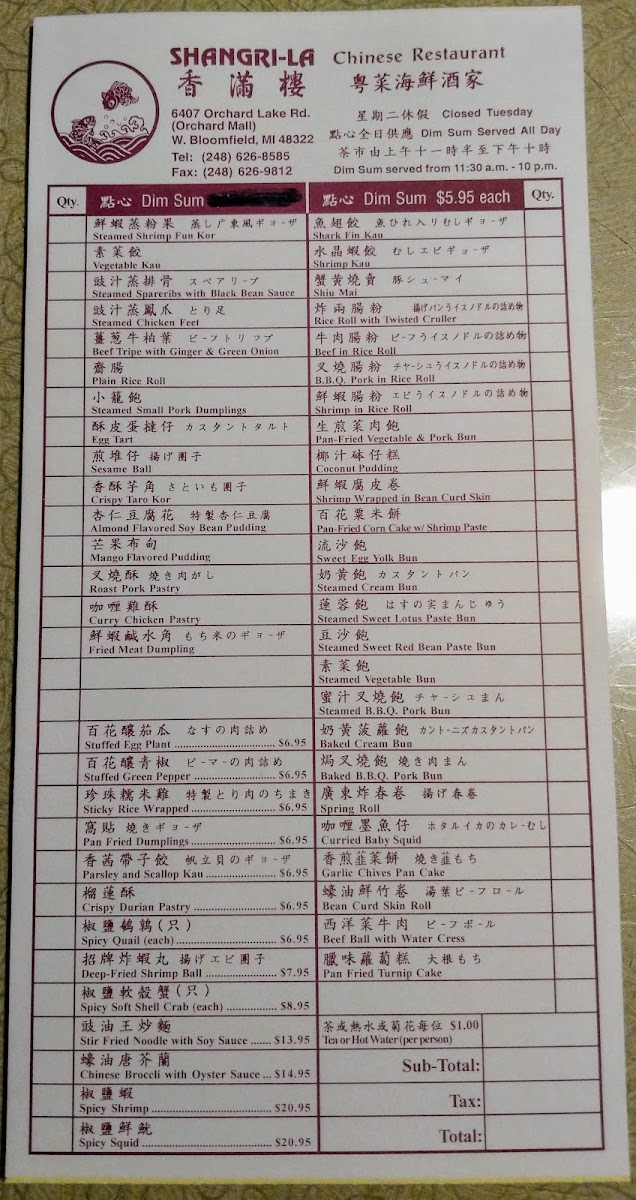 SHANGRI-LA Chinese Restaurant
香滿樓 粵菜海鮮酒家
6407 Orchard Lake Rd.
(Orchard Mall)
W. Bloomfield, MI 48322
Tel: (248) 626-8585
Fax: (248) 626-9812
星期二休假 Closed Tuesday
點心全日供應 Dim Sum Served All Day
茶市由上午十一時半至下午十時
Dim Sum served from 11:30 a.m. - 10 p.m.
Qty. 點心 Dim Sum
鮮蝦蒸粉果 蒸し广東風ギョーザ
Steamed Shrimp Fun Kor
素菜餃
Vegetable Kau
豉汁蒸排骨 スペアリーブ
Steamed Spareribs with Black Bean Sauce
豉汁蒸鳳爪 とり足
Steamed Chicken Feet
薑蔥牛柏葉 ビーフトリップ
Beef Tripe with Ginger & Green Onion
齋腸
Plain Rice Roll
小籠飽
Steamed Small Pork Dumplings
酥皮蛋撻仔 カスタントタルト
Egg Tart
煎堆仔 揚げ團子
Sesame Ball
香酥芋角 さといも團子
Crispy Taro Kor
杏仁豆腐花 特製杏仁豆腐
Almond Flavored Soy Bean Pudding
芒果布甸
Mango Flavored Pudding
叉燒酥 燒き肉がし
Roast Pork Pastry
咖喱雞酥
Curry Chicken Pastry
鮮蝦鹹水角 もち米のギョーザ
Fried Meat Dumpling
百花釀茄瓜 なすの肉詰め
Stuffed Egg Plant $6.95
百花釀青椒 ピーマーの肉詰め
Stuffed Green Pepper $6.95
珍珠糯米雞 特製とり肉のちまき
Sticky Rice Wrapped $6.95
窩貼 燒きギョーザ
Pan Fried Dumplings $6.95
香茜帶子餃 帆立貝のギョーザ
Parsley and Scallop Kau $6.95
榴蓮酥
Crispy Durian Pastry $6.95
椒鹽鵪鶉(只)
Spicy Quail (each) $6.95
招牌炸蝦丸 揚げエビ團子
Deep-Fried Shrimp Ball $7.95
椒鹽軟殼蟹(只)
Spicy Soft Shell Crab (each) $8.95
豉油王炒麵
Stir Fried Noodle with Soy Sauce $13.95
蠔油唐芥蘭
Chinese Broccli with Oyster Sauce $14.95
椒鹽蝦
Spicy Shrimp $20.95
椒鹽鮮魷
Spicy Squid $20.95
點心 Dim Sum $5.95 each Qty.
魚翅餃 魚ひれ入りむしギョーザ
Shark Fin Kau
水晶蝦餃 むしエビギョーザ
Shrimp Kau
蟹黃燒賣 豚シューマイ
Shiu Mai
炸兩腸粉 揚げパンライスノドルの詰め物
Rice Roll with Twisted Cruller
牛肉腸粉 ビーフライスノドルの詰め物
Beef in Rice Roll
叉燒腸粉 チャーシュウライスノドルの詰め物
B.B.Q. Pork in Rice Roll
鮮蝦腸粉 エビライスノドルの詰め物
Shrimp in Rice Roll
生煎菜肉飽
Pan-Fried Vegetable & Pork Bun
椰汁砵仔糕
Coconut Pudding
鮮蝦腐皮卷
Shrimp Wrapped in Bean Curd Skin
百花粟米餅
Pan-Fried Corn Cake w/ Shrimp Paste
流沙飽
Sweet Egg Yolk Bun
奶黃飽 カスタントパン
Steamed Cream Bun
蓮蓉飽 はすの实まんじゅう
Steamed Sweet Lotus Paste Bun
豆沙飽
Steamed Sweet Red Bean Paste Bun
素菜飽
Steamed Vegetable Bun
蜜汁叉燒飽 チャーシュまん
Steamed B.B.Q. Pork Bun
奶黃菠蘿飽 カントーニズカスタントパン
Baked Cream Bun
焗叉燒飽 燒き肉まん
Baked B.B.Q. Pork Bun
廣東炸春卷 揚げ春卷
Spring Roll
咖喱墨魚仔 ホタルイカのカレーむし
Curried Baby Squid
香煎韮菜餅 燒き韮もち
Garlic Chives Pan Cake
蠔油鮮竹卷 湯葉ビーフロール
Bean Curd Skin Roll
西洋菜牛肉 ビーフボール
Beef Ball with Water Cress
臘味蘿蔔糕 大根もち
Pan Fried Turnip Cake
茶或熱水或菊花每位 $1.00
Tea or Hot Water (per person)
Sub-Total:
Tax:
Total: